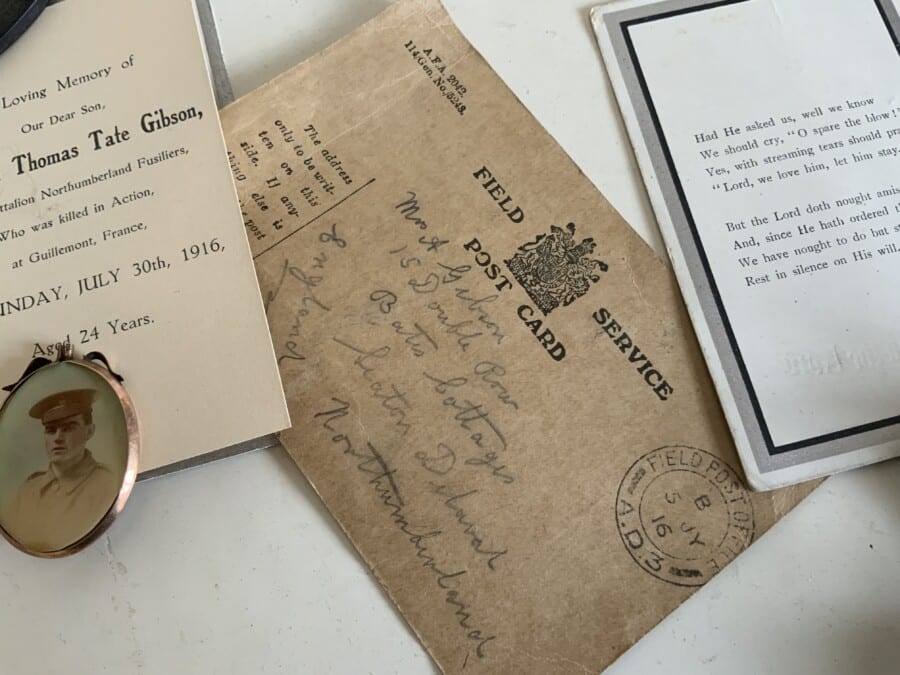 Loving Memory of
Our Dear Son,
Thomas Tate Gibson,
Northumberland Fusiliers,
Who was killed in Action,
at Guillemont, France,
JULY 30th, 1916,
Aged 24 Years.
A.F.A. 2042.
114/Gen. No./5248.
The address
only to be writ-
ten on this
side. If any-
else is
post
FIELD SERVICE
POST CARD
Mrs A Gibson
15 Double Row
Bates Cottages
Seaton Delaval
Northumberland
England
FIELD POST
B
5 JY
16
A.D.3
Had He asked us, well we know
We should cry, "O spare the blow!
Yes, with streaming tears should
"Lord, we love him, let him stay.
But the Lord doth nought
And, since He hath ordered
We have nought to do but
Rest in silence on His will.